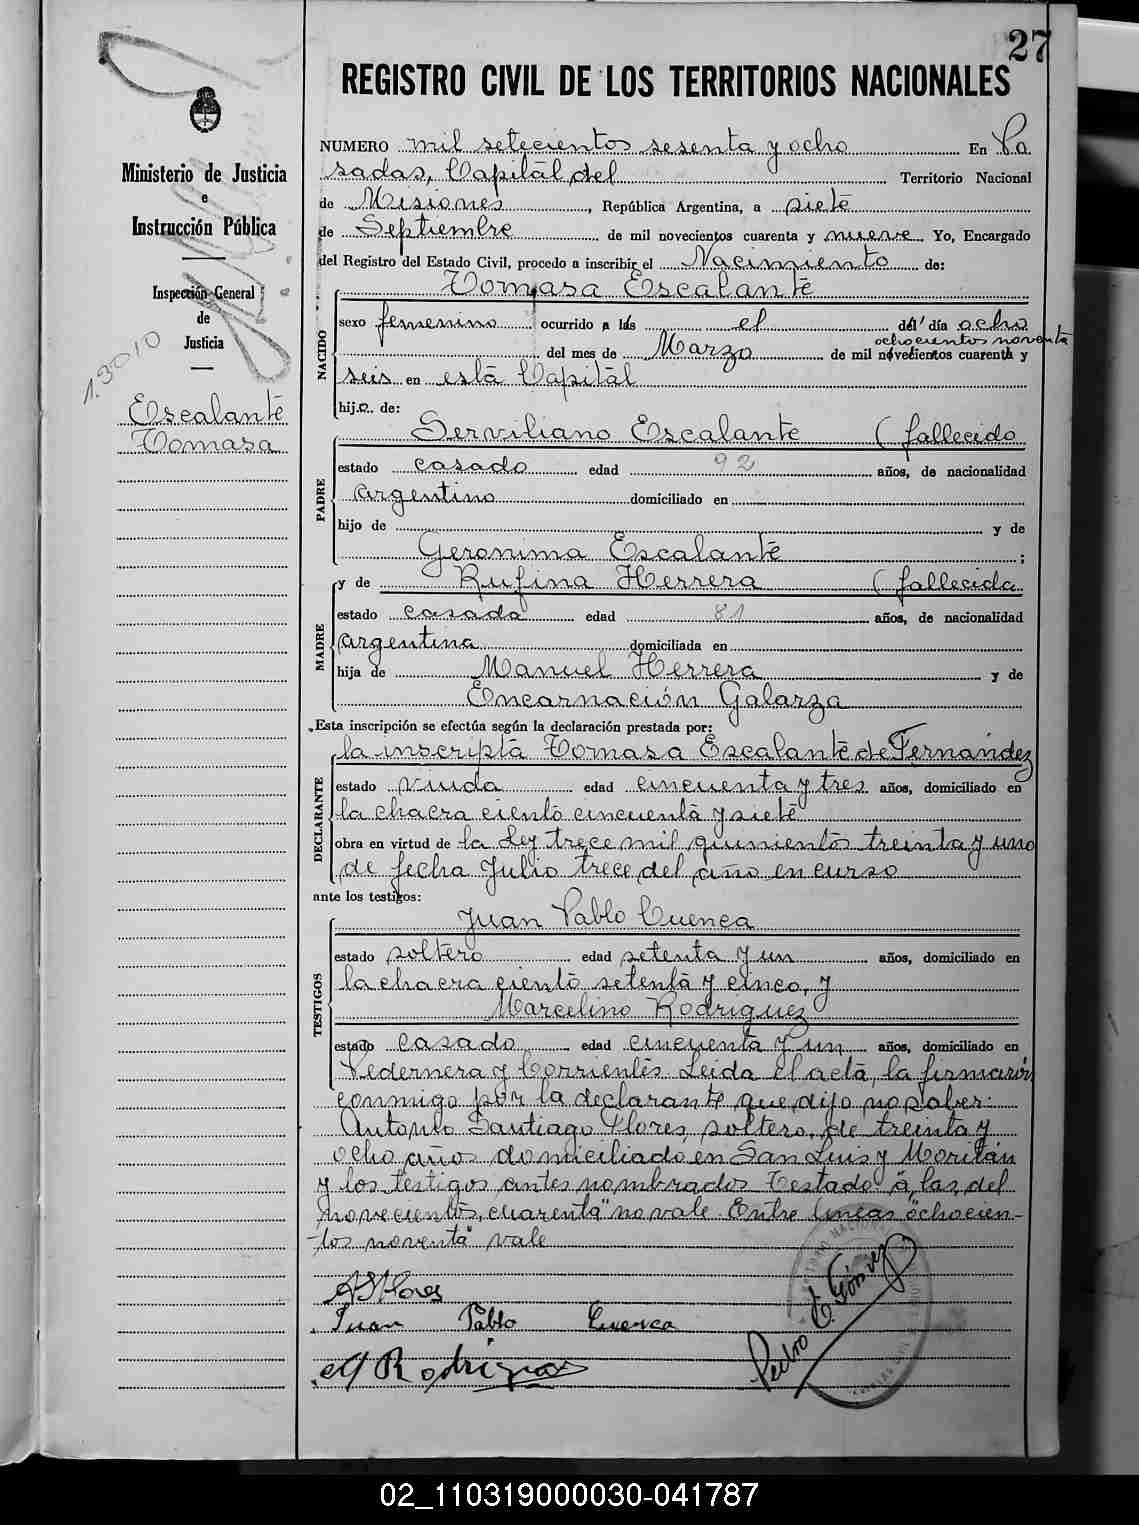 27
REGISTRO CIVIL DE LOS TERRITORIOS NACIONALES
Ministerio de Justicia
e
Instrucción Pública
Inspección General
de
Justicia
1.3010
Escalante
Tomasa
NUMERO mil setecientos sesenta y ocho En Po
sadas, Capital del Territorio Nacional
de Misiones, República Argentina, a siete
de Septiembre de mil novecientos cuarenta y nueve Yo, Encargado
del Registro del Estado Civil, procedo a inscribir el Nacimiento de:
NACIDO
Tomasa Escalante
sexo femenino ocurrido a las el del día ocho
ochocientos noventa
del mes de Marzo de mil novecientos cuarenta y
seis en esta Capital
hij.a. de:
PADRE
Serviliano Escalante (fallecido
estado casado edad 92 años, de nacionalidad
argentino domiciliado en
hijo de y de
Geronima Escalante ;
MADRE
y de Rufina Herrera (fallecida
estado casada edad 81 años, de nacionalidad
argentina domiciliada en
hija de Manuel Herrera y de
Encarnación Galarza
Esta inscripción se efectúa según la declaración prestada por:
DECLARANTE
la inscripta Tomasa Escalante de Fernandez
estado viuda edad cincuenta y tres años, domiciliado en
la chacra ciento cincuenta y siete
obra en virtud de la Ley trece mil quinientos treinta y uno
de fecha Julio trece del año en curso
ante los testigos:
TESTIGOS
Juan Pablo Cuenca
estado soltero edad setenta y un años, domiciliado en
la chacra ciento setenta y cinco, y
Marcelino Rodriguez
estado casado edad cincuenta y un años, domiciliado en
Pedernera y Corrientes Leida el acta, la firmaron
conmigo por la declarante que dijo no saber:
Antonio Santiago Flores, soltero, de treinta y
ocho años domiciliado en San Luis y Moritán
y los testigos antes nombrados Testado "a, las, del
novecientos, cuarenta" no vale. Entre lineas "ochocien-
tos noventa" vale
A S Flores
Juan Pablo Cuenca
M Rodriguez
Pedro E. Gónvez
02_110319000030-041787